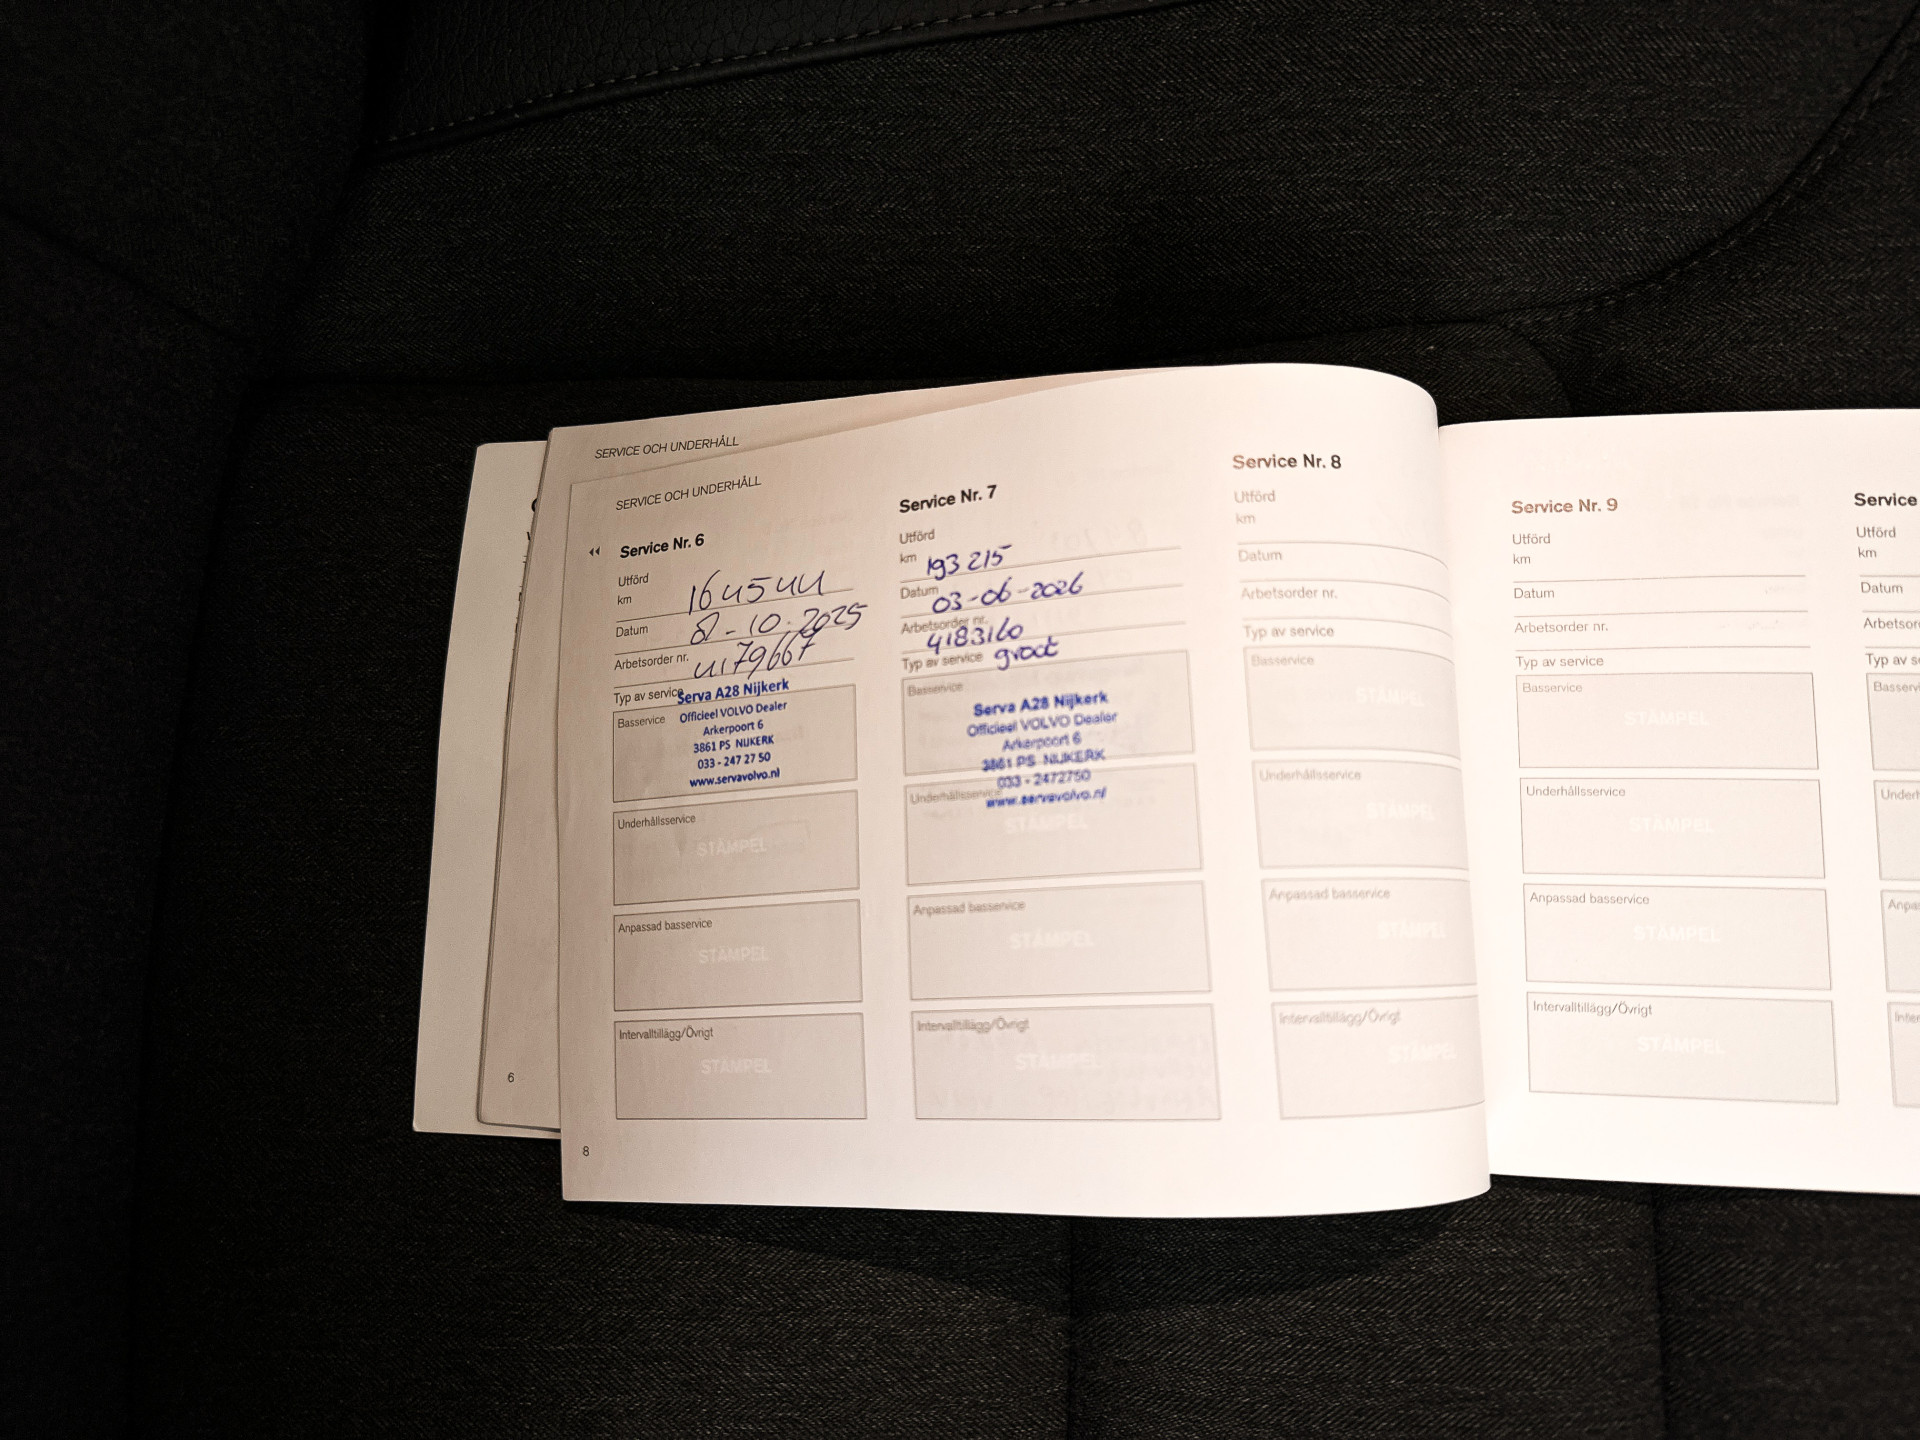 SERVICE OCH UNDERHÅLL
SERVICE OCH UNDERHÅLL
Service Nr. 6
Utförd
km 164544
Datum 8-10-2025
Arbetsorder nr. 4179667
Typ av service
Basservice
Serva A28 Nijkerk
Officieel VOLVO Dealer
Arkerpoort 6
3861 PS NIJKERK
033 - 247 27 50
www.servavolvo.nl
Underhållsservice
STÄMPEL
Anpassad basservice
STÄMPEL
Intervalltillägg/Övrigt
STÄMPEL
Service Nr. 7
Utförd
km 193215
Datum 03-06-2026
Arbetsorder nr. 4183160
Typ av service groot
Basservice
Serva A28 Nijkerk
Officieel VOLVO Dealer
Arkerpoort 6
3861 PS NIJKERK
033 - 2472750
www.servavolvo.nl
Underhållsservice
STÄMPEL
Anpassad basservice
STÄMPEL
Intervalltillägg/Övrigt
STÄMPEL
Service Nr. 8
Utförd
km
Datum
Arbetsorder nr.
Typ av service
Basservice
STÄMPEL
Underhållsservice
STÄMPEL
Anpassad basservice
STÄMPEL
Intervalltillägg/Övrigt
STÄMPEL
6
8
Service Nr. 9
Utförd
km
Datum
Arbetsorder nr.
Typ av service
Basservice
STÄMPEL
Underhållsservice
STÄMPEL
Anpassad basservice
STÄMPEL
Intervalltillägg/Övrigt
STÄMPEL
Service
Utförd
km
Datum
Arbetsor
Typ av s
Basservi
Underh
Anpas
Inter